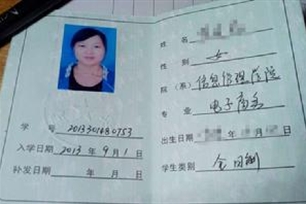 姓名
性别 女
院(系) 信息管理学院
专业 电子商务
学号 2013301680753
出生日期 年 月 日
入学日期 2013 年 9 月 1 日
学生类别 全日制
补发日期 年 月 日